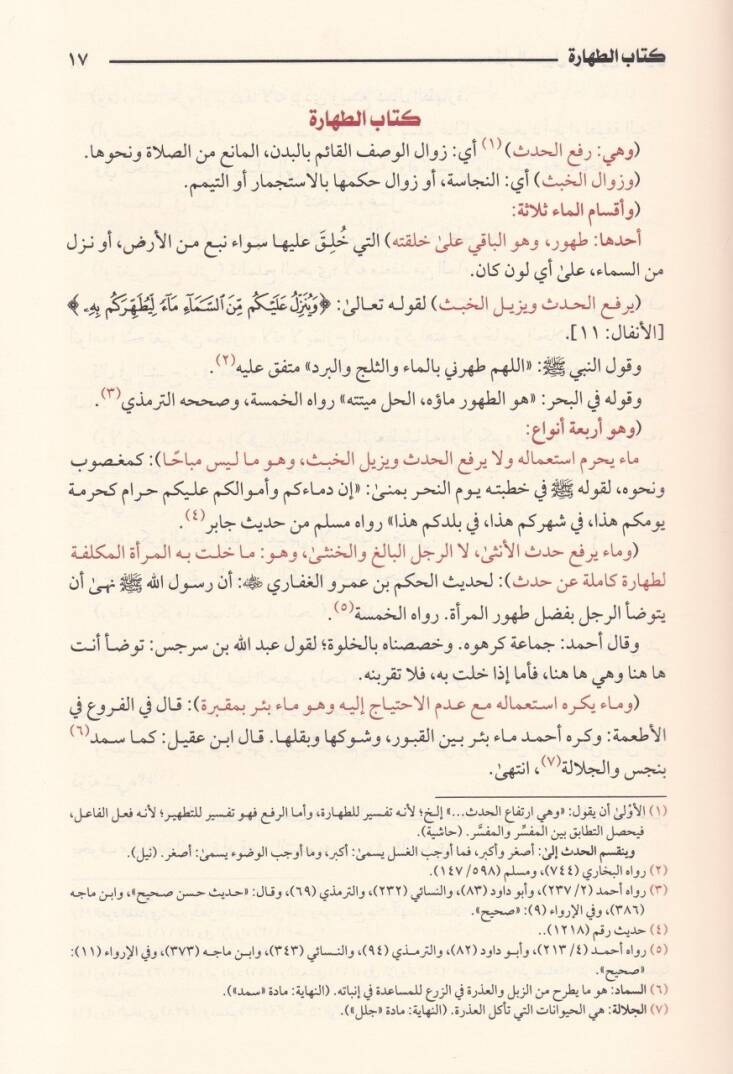 كتاب الطهارة ١٧
كتاب الطهارة
(وهي: رفع الحدث)(١) أي: زوال الوصف القائم بالبدن، المانع من الصلاة ونحوها.
(وزوال الخبث) أي: النجاسة، أو زوال حكمها بالاستجمار أو التيمم.
(وأقسام الماء ثلاثة:
أحدها: طهور، وهو الباقي علىٰ خلقته) التي خُلِقَ عليها سواء نبع من الأرض، أو نزل
من السماء، علىٰ أي لون كان.
(يرفع الحدث ويزيل الخبث) لقوله تعالىٰ: ﴿وَيُنَزِّلُ عَلَيْكُم مِّنَ ٱلسَّمَآءِ مَآءً لِّيُطَهِّرَكُم بِهِۦ﴾
[الأنفال: ١١].
وقول النبي ﷺ: «اللهم طهرني بالماء والثلج والبرد» متفق عليه(٢).
وقوله في البحر: «هو الطهور ماؤه، الحل ميتته» رواه الخمسة، وصححه الترمذي(٣).
(وهو أربعة أنواع:
ماء يحرم استعماله ولا يرفع الحدث ويزيل الخبث، وهو ما ليس مباحًا): كمغصوب
ونحوه، لقوله ﷺ في خطبته يوم النحر بمنىٰ: «إن دماءكم وأموالكم عليكم حرام كحرمة
يومكم هذا، في شهركم هذا، في بلدكم هذا» رواه مسلم من حديث جابر(٤).
(وماء يرفع حدث الأنثىٰ، لا الرجل البالغ والخنثىٰ، وهو: ما خلت به المرأة المكلفة
لطهارة كاملة عن حدث): لحديث الحكم بن عمرو الغفاري ﵁: أن رسول الله ﷺ نهىٰ أن
يتوضأ الرجل بفضل طهور المرأة. رواه الخمسة(٥).
وقال أحمد: جماعة كرهوه. وخصصناه بالخلوة؛ لقول عبد الله بن سرجس: توضأ أنت
ها هنا وهي ها هنا، فأما إذا خلت به، فلا تقربنه.
(وماء يكره استعماله مع عدم الاحتياج إليه وهو ماء بئر بمقبرة): قال في الفروع في
الأطعمة: وكره أحمد ماء بئر بين القبور، وشوكها وبقلها. قال ابن عقيل: كما سمد(٦)
بنجس والجلالة(٧)، انتهىٰ.
(١) الأوْلىٰ أن يقول: «وهي ارتفاع الحدث...» إلخ؛ لأنه تفسير للطهارة، وأما الرفع فهو تفسير للتطهير؛ لأنه فعل الفاعل،
فيحصل التطابق بين المفسِّر والمفسَّر. (حاشية).
وينقسم الحدث إلىٰ: أصغر وأكبر، فما أوجب الغسل يسمىٰ: أكبر، وما أوجب الوضوء يسمىٰ: أصغر. (نيل).
(٢) رواه البخاري (٧٤٤)، ومسلم (٥٩٨/ ١٤٧).
(٣) رواه أحمد (٢/ ٢٣٧)، وأبو داود (٨٣)، والنسائي (٢٣٢)، والترمذي (٦٩)، وقال: «حديث حسن صحيح»، وابن ماجه
(٣٨٦)، وفي الإرواء (٩): «صحيح».
(٤) حديث رقم (١٢١٨)..
(٥) رواه أحمد (٤/ ٢١٣)، وأبو داود (٨٢)، والترمذي (٩٤)، والنسائي (٣٤٣)، وابن ماجه (٣٧٣)، وفي الإرواء (١١):
«صحيح».
(٦) السماد: هو ما يطرح من الزبل والعذرة في الزرع للمساعدة في إنباته. (النهاية: مادة «سمد»).
(٧) الجلالة: هي الحيوانات التي تأكل العذرة. (النهاية: مادة «جلل»).